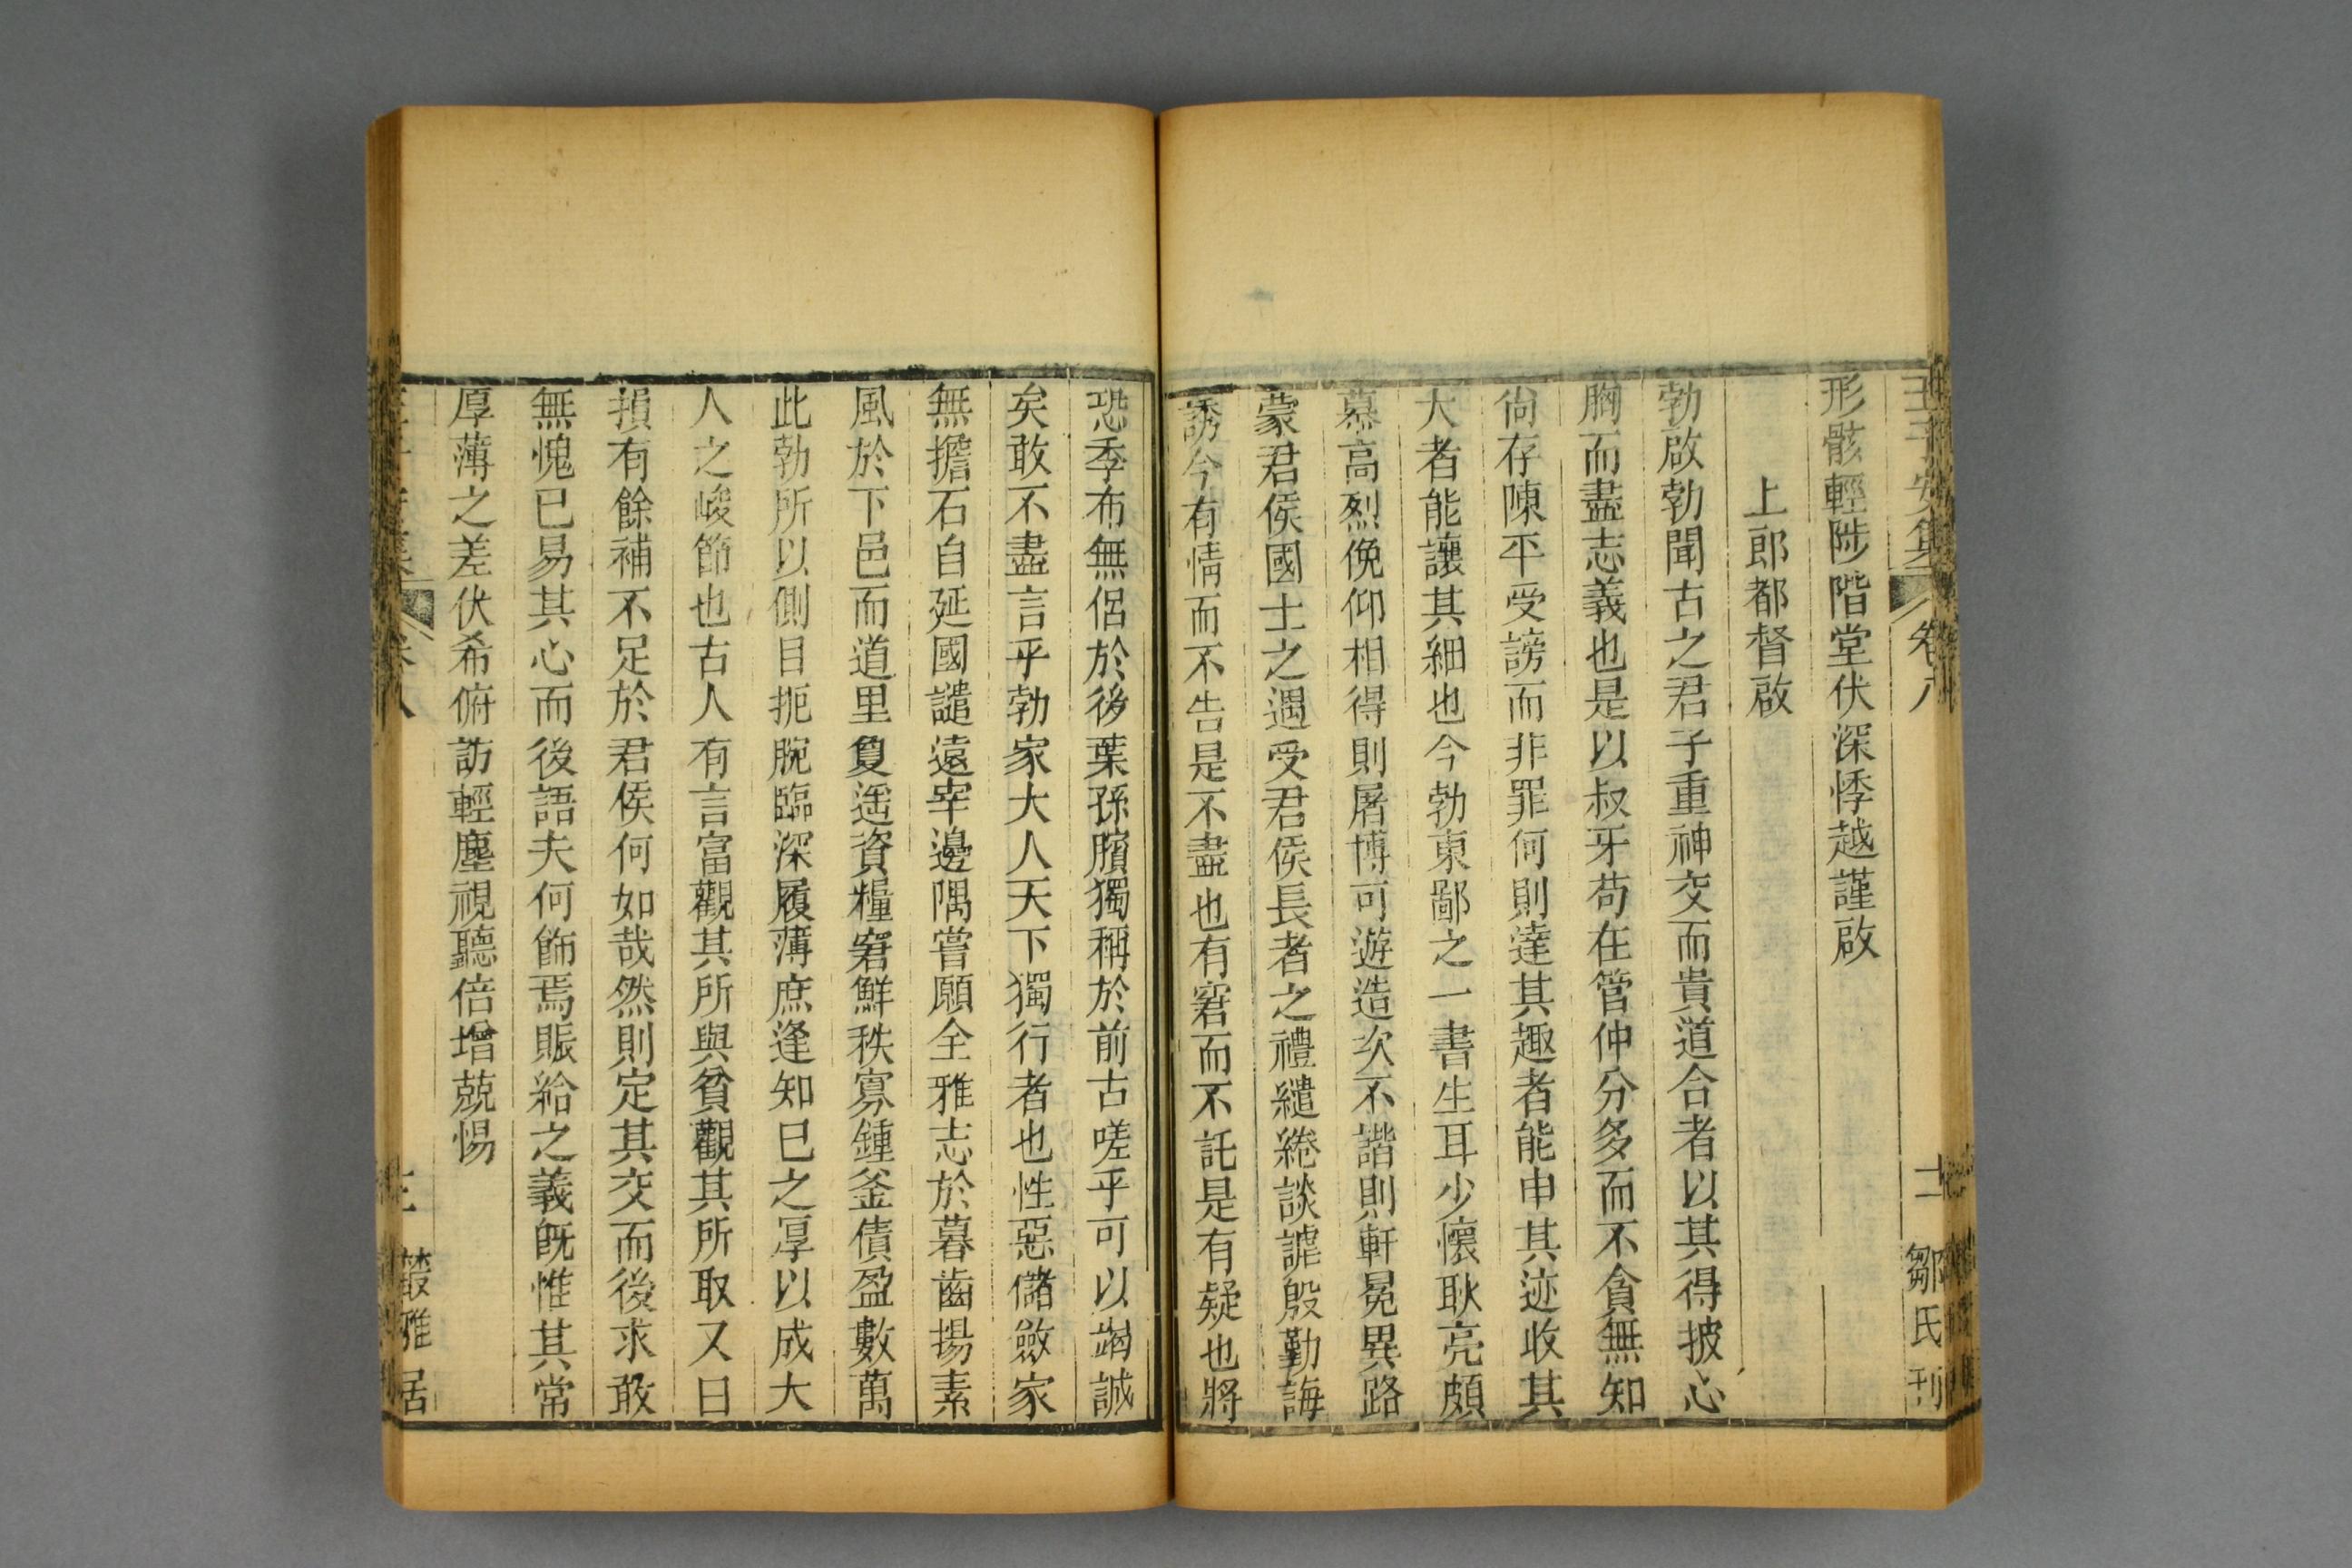 王子安集 卷八 十二 鄒氏刊
形骸輕陟階堂伏深悸越謹啟
上郎都督啟
勃啟勃聞古之君子重神交而貴道合者以其得披心
胸而盡志義也是以叔牙苟在管仲分多而不貪無知
尙存陳平受謗而非罪何則達其趣者能申其迹收其
大者能讓其細也今勃東鄙之一書生耳少懷耿亮頗
慕高烈俛仰相得則屠博可遊造次不諧則軒冕異路
蒙君侯國士之遇受君侯長者之禮繾綣談謔殷勤誨
誘今有情而不告是不盡也有窘而不託是有疑也將
恐季布無侶於後葉孫臏獨稱於前古嗟乎可以竭誠
矣敢不盡言乎勃家大人天下獨行者也性惡儲斂家
無擔石自延國譴遠宰邊隅嘗願全雅志於暮齒揚素
風於下邑而道里敻遥資糧窘鮮秩寡鍾釜債盈數萬
此勃所以側目扼腕臨深履薄庶逢知已之厚以成大
人之峻節也古人有言富觀其所與貧觀其所取又曰
損有餘補不足於君侯何如哉然則定其交而後求敢
無愧已易其心而後語夫何飾焉賑給之義旣惟其常
厚薄之差伏希俯訪輕塵視聽倍增兢惕
卷八 叢雅居